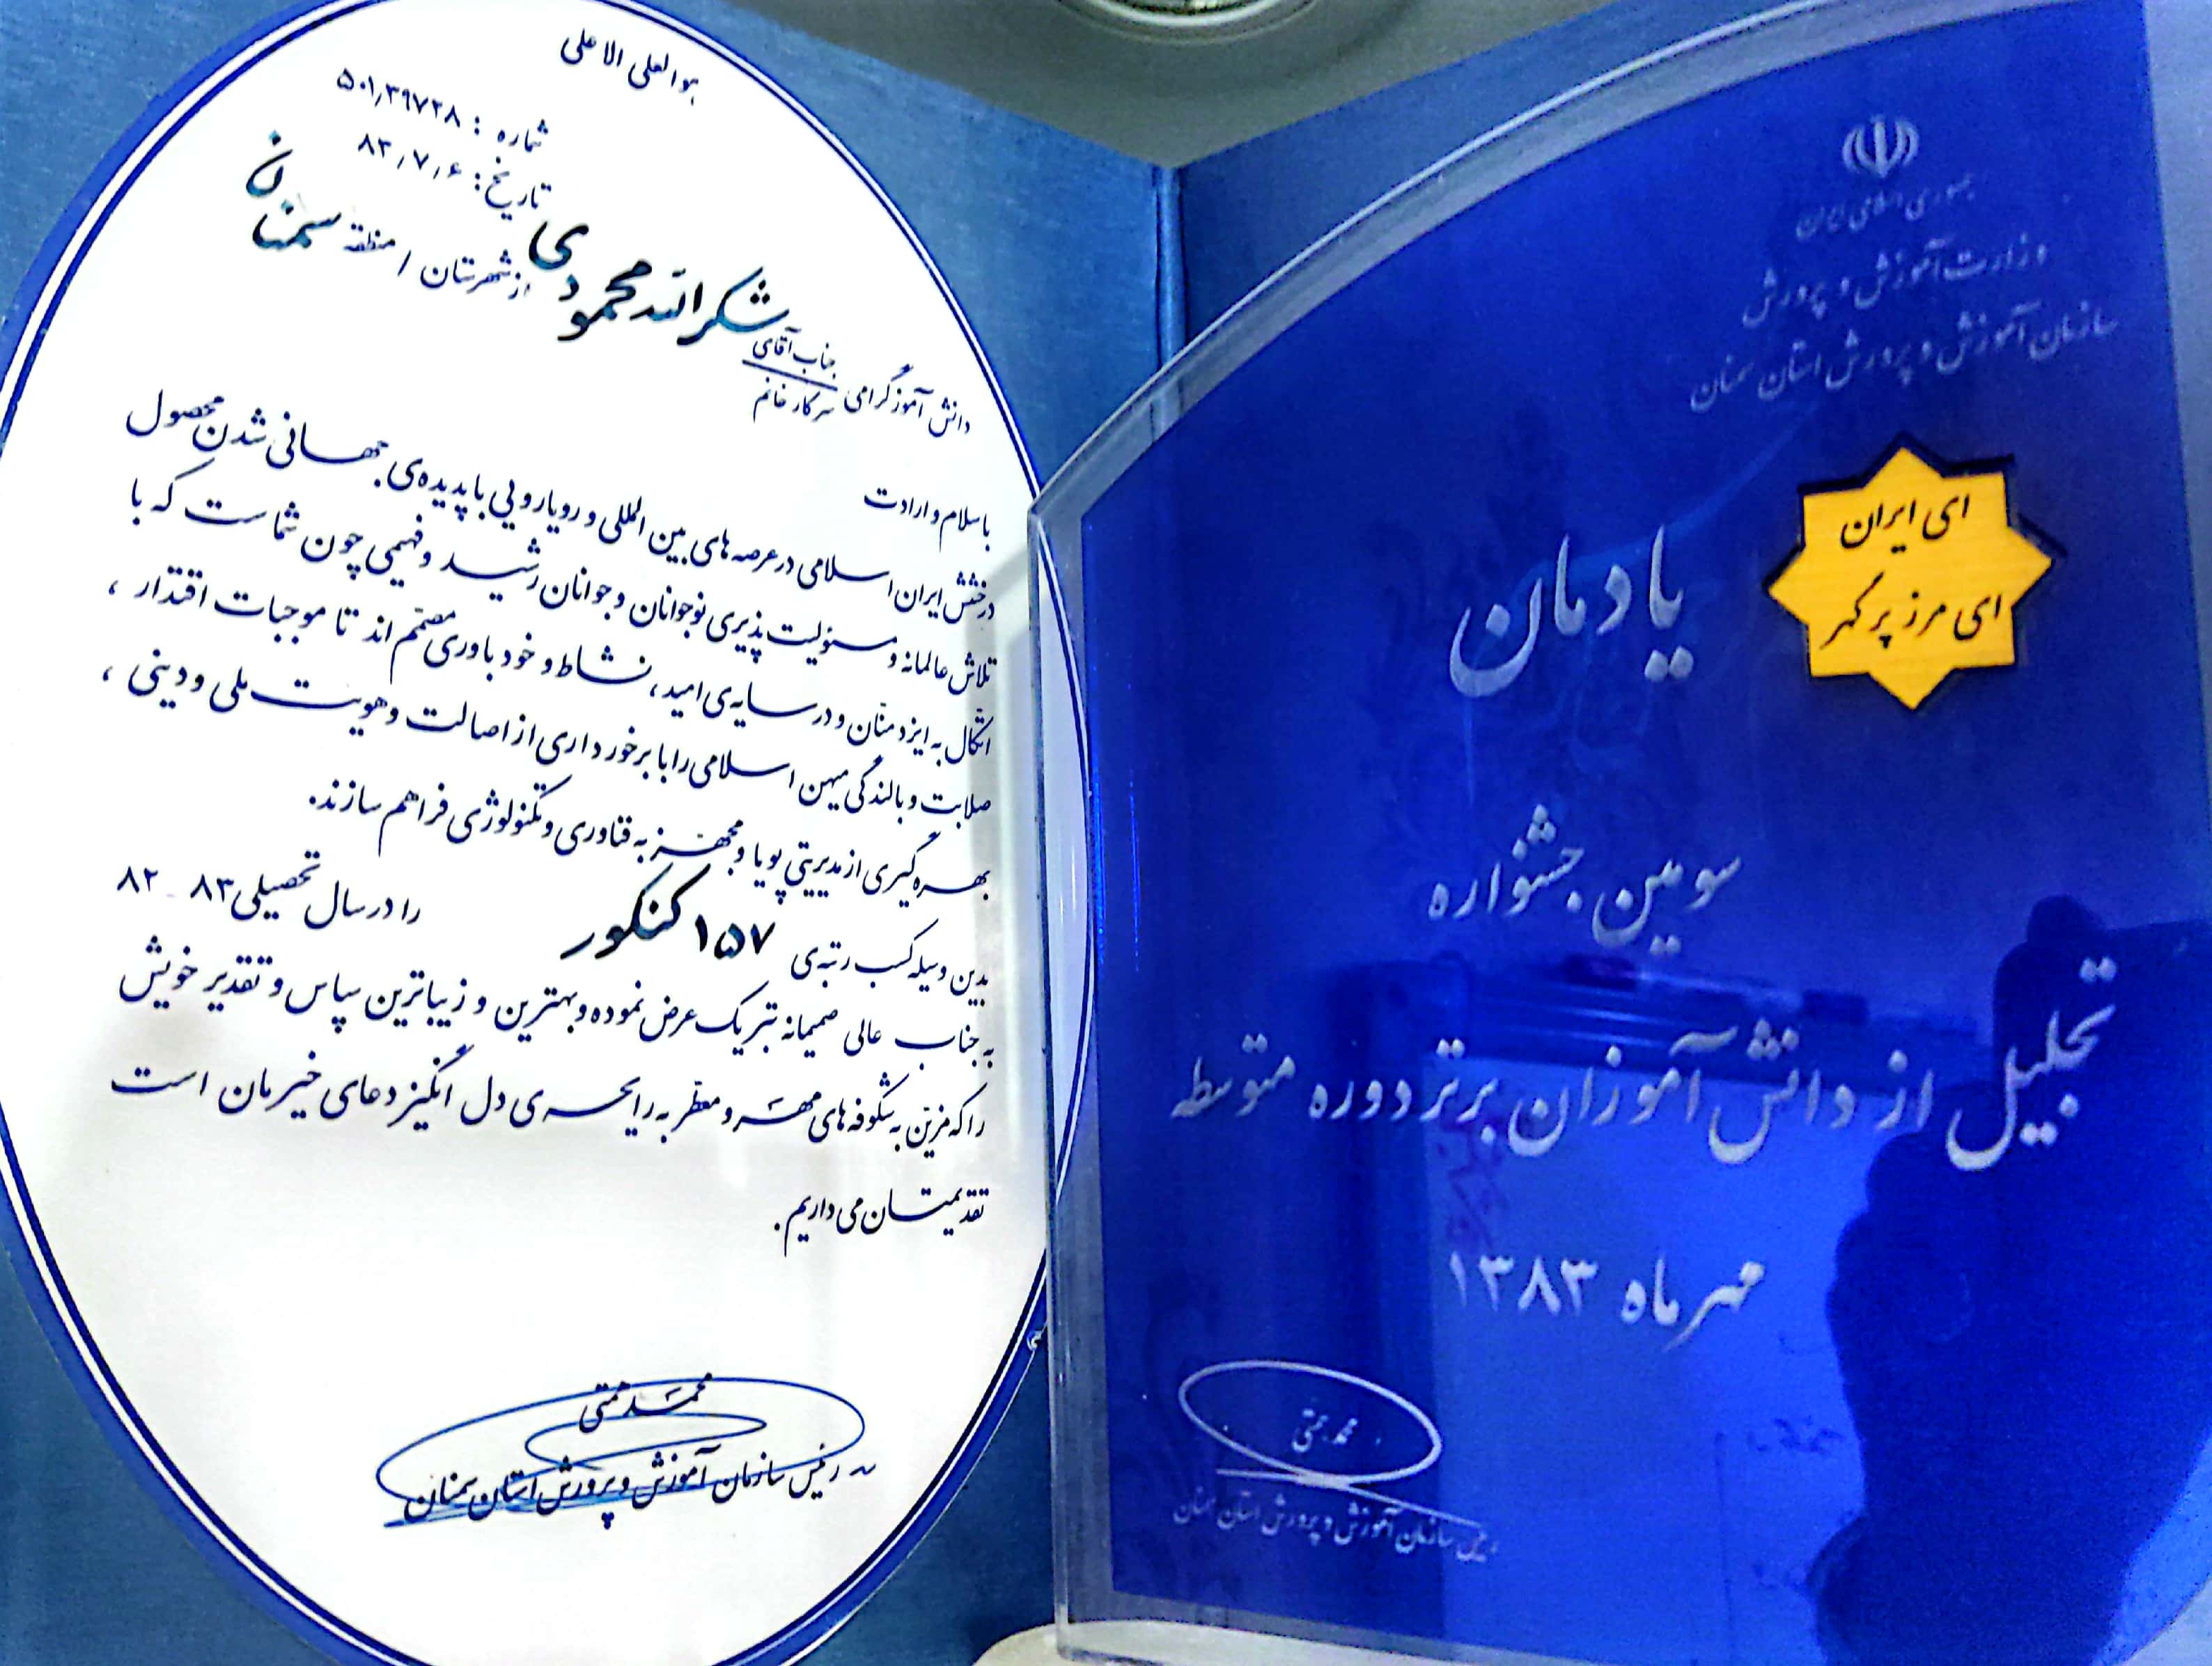 هو العلی الاعلی
شماره : ۵۰۱٫۳۹۷۲۸
تاریخ : ۸۳٫۷٫۶
دانش آموز گرامی جناب آقای / سرکار خانم شکرالله محمودی از شهرستان / منطقه سمنان
با سلام و ارادت
درخشش ایران اسلامی در عرصه های بین المللی و رویارویی با پدیده‌ی جهانی شدن محصول
تلاش عالمانه و مسئولیت پذیری نوجوانان و جوانان رشید و فهیمی چون شماست که با
اتکال به ایزد منان و در سایه‌ی امید، نشاط و خود باوری مصمّم اند تا موجبات اقتدار ،
صلابت و بالندگی میهن اسلامی را با برخورداری از اصالت و هویت ملی و دینی ،
بهره گیری از مدیریتی پویا و مجهّز به فناوری و تکنولوژی فراهم سازند.
بدین وسیله کسب رتبه‌ی ۱۵۷ کنکور را در سال تحصیلی ۸۳ - ۸۲
به جناب عالی صمیمانه تبریک عرض نموده و بهترین و زیباترین سپاس و تقدیر خویش
را که مزیّن به شکوفه های مهر و معطّر به رایحه‌ی دل انگیز دعای خیرمان است
تقدیمتان می داریم .
محمد همتی
رئیس سازمان آموزش و پرورش استان سمنان
جمهوری اسلامی ایران
وزارت آموزش و پرورش
سازمان آموزش و پرورش استان سمنان
ای ایران
ای مرز پر گهر
یادمان
سومین جشنواره
تجلیل از دانش آموزان برتر دوره متوسطه
مهر ماه ۱۳۸۳
محمد همتی
رئیس سازمان آموزش و پرورش استان سمنان